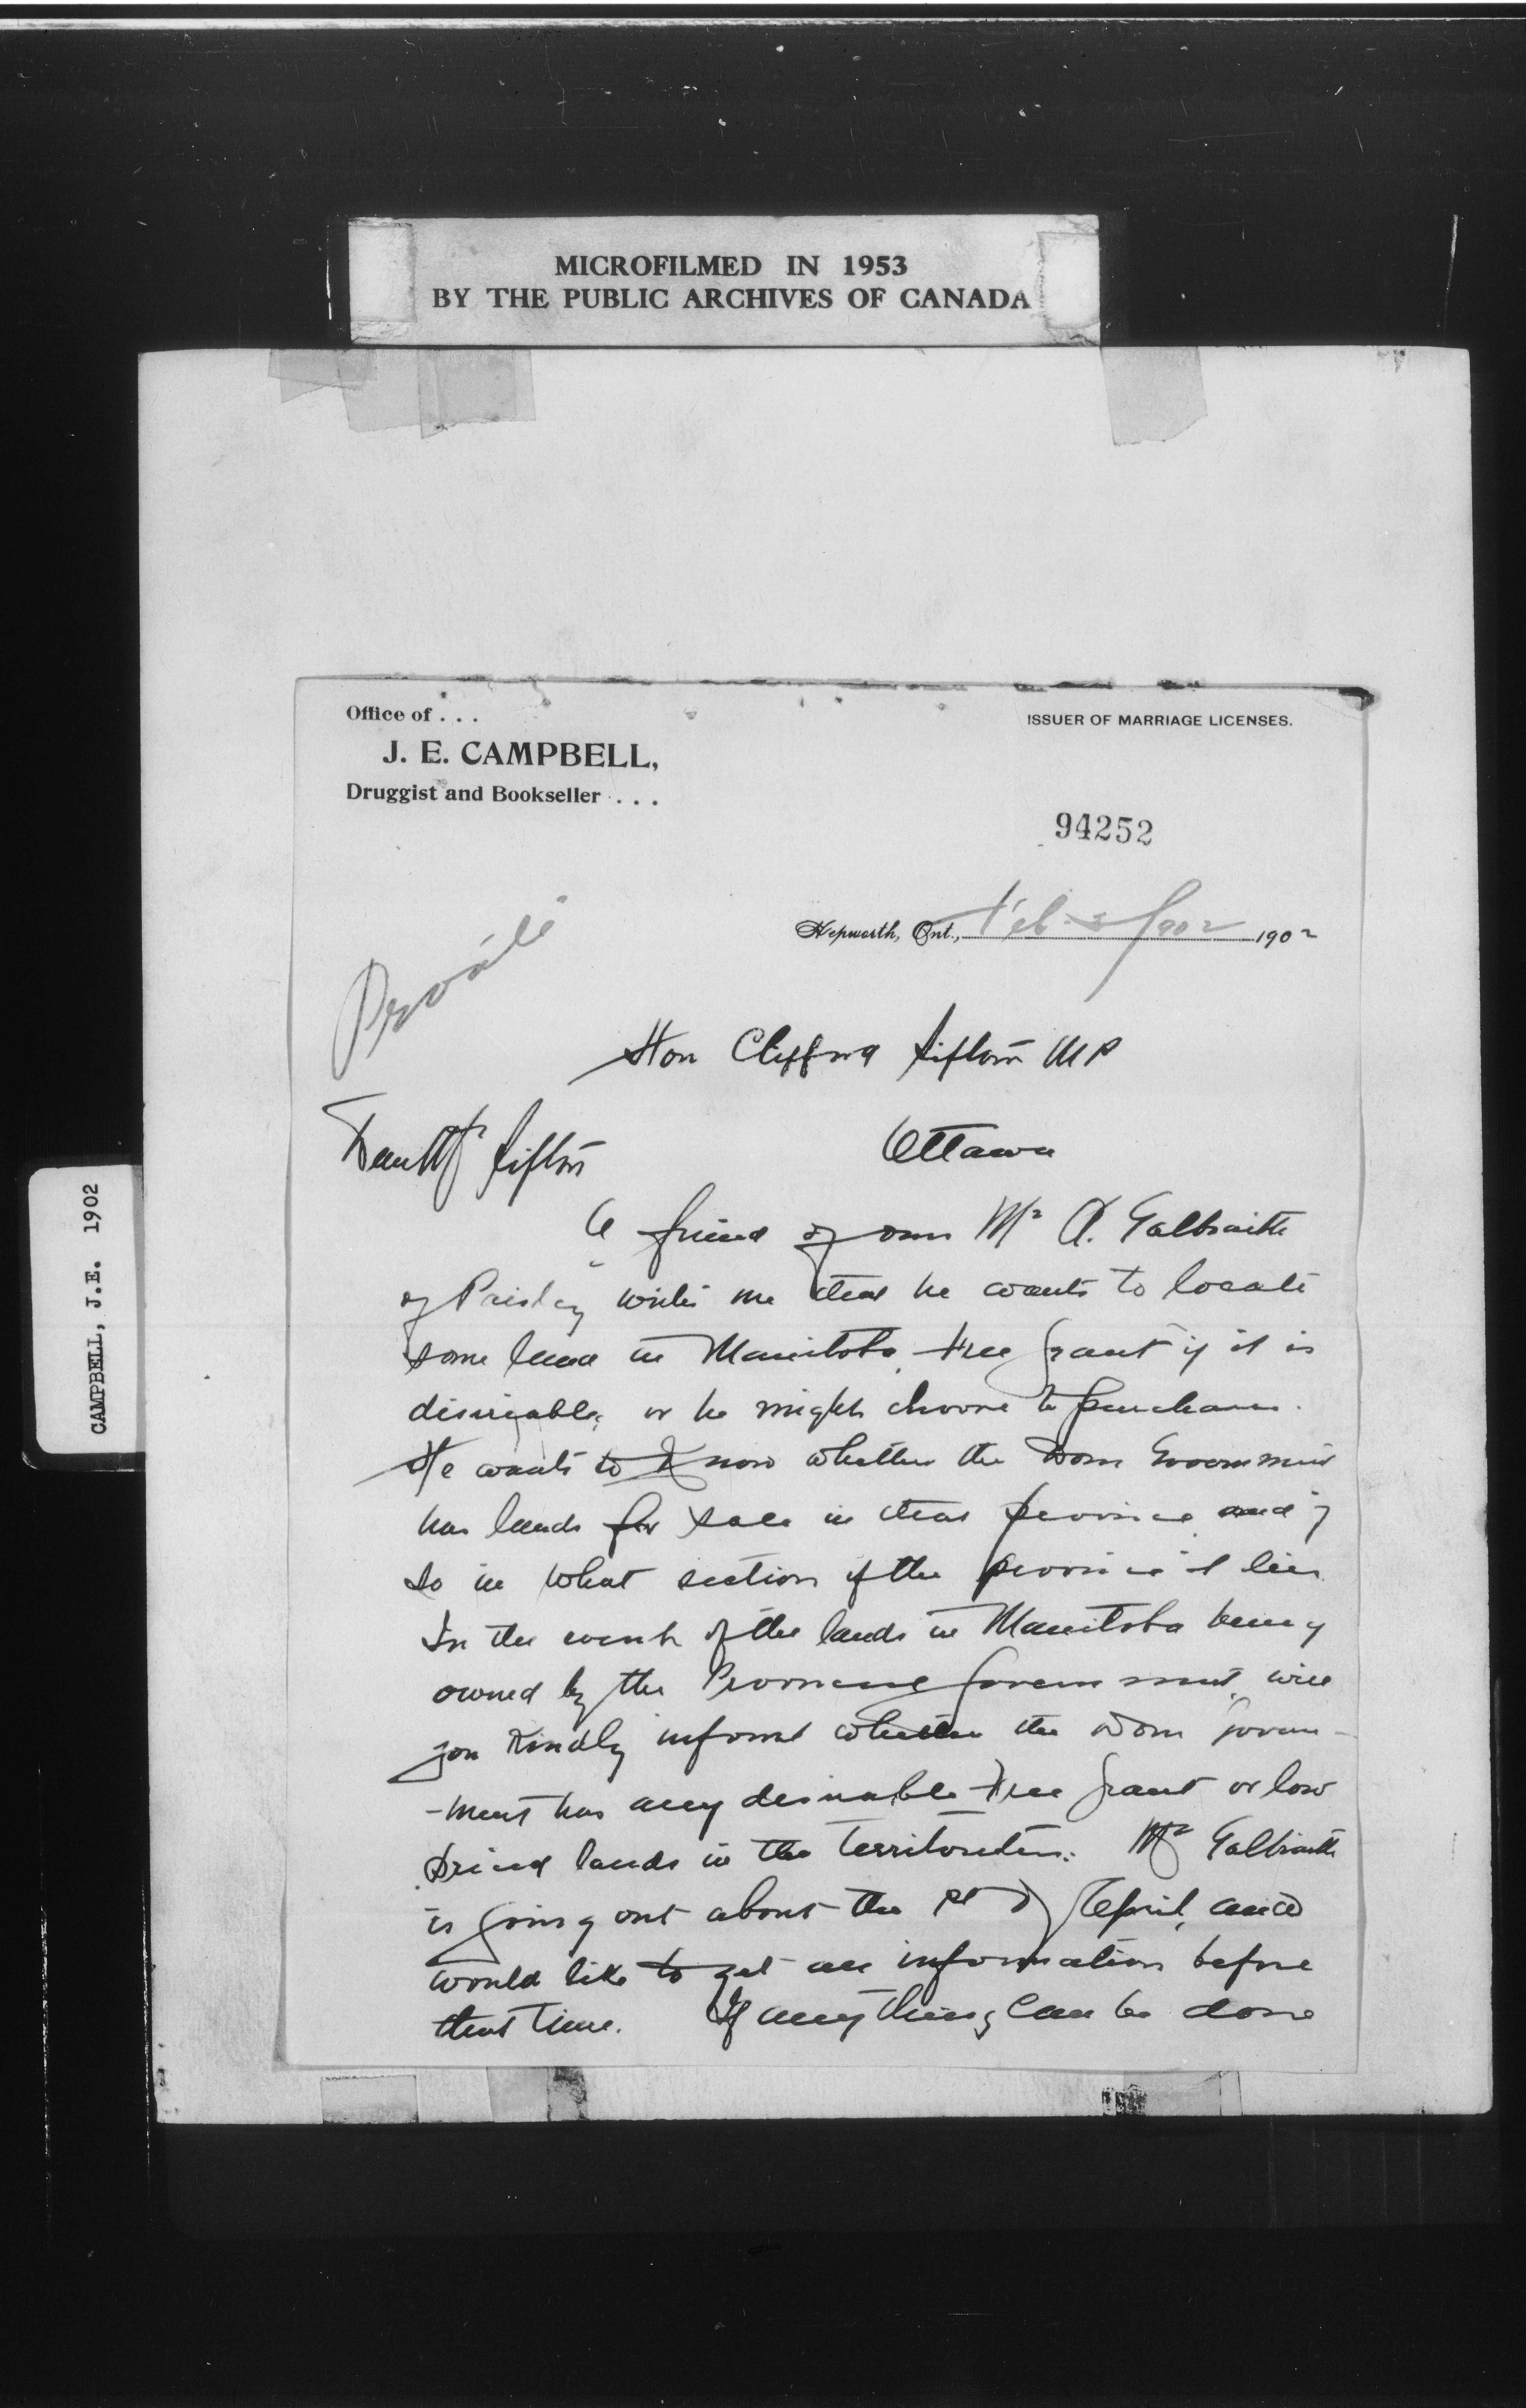 MICROFILMED IN 1953
BY THE PUBLIC ARCHIVES OF CANADA
CAMPBELL, J.E. 1902
Office of . . .
ISSUER OF MARRIAGE LICENSES.
J. E. CAMPBELL,
Druggist and Bookseller . . .
94252
Hepworth, Ont., Feb 1902 1902
Private
Hon Clifford Sifton MP
Ottawa
Dear Mr Sifton
A friend of ours Mr A. Galbraith
of Paisley writes me that he wants to locate
some land in Manitoba, free grant if it is
desireable, or he might choose to purchase.
He wants to know whether the Dom Government
has lands for sale in that province and if
so in what section of the province it lies
In the event of the lands in Manitoba being
owned by the Provincial Government, will
you kindly inform whether the Dom Govern-
-ment has any desirable free grant or low
priced lands in the Mr Galbraith
is going out about the 1st of April, and
would like to get all information before
that time. If anything can be done